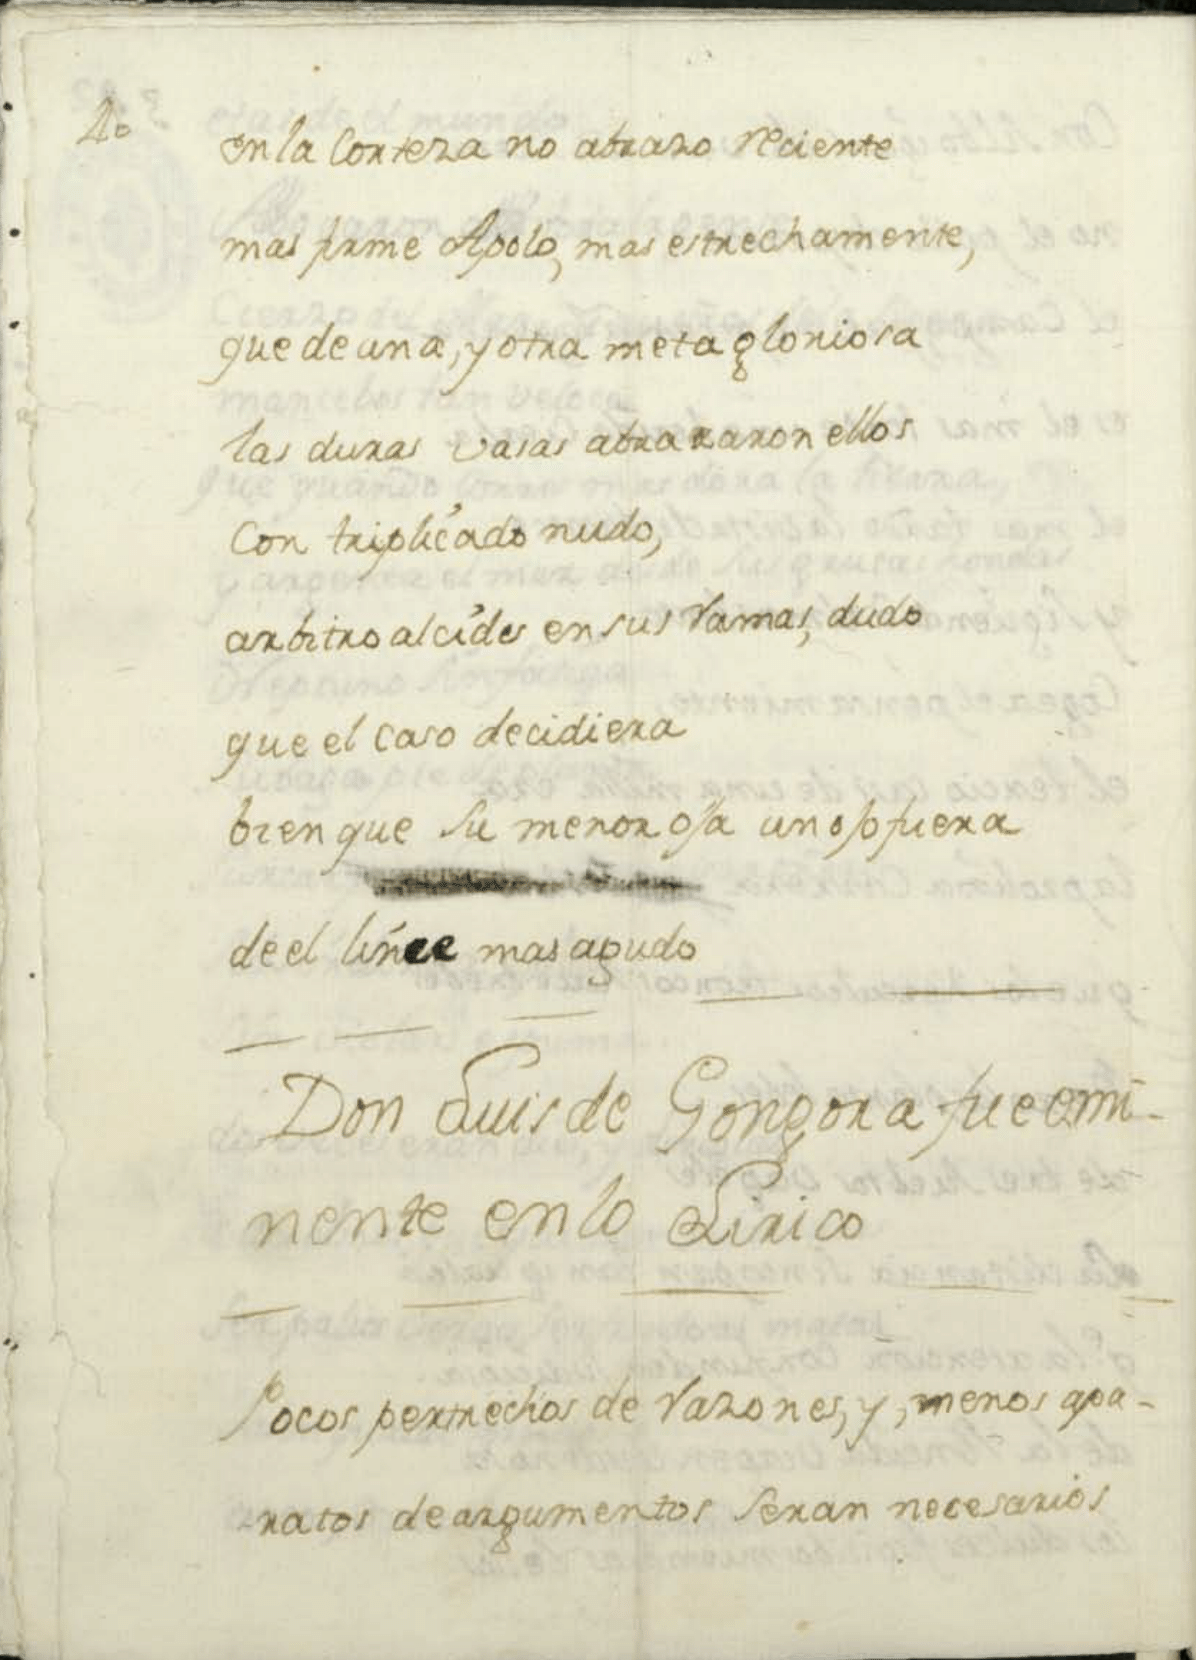 4o
en la Corteza no abrazo reciente
mas firme Apolo, mas estrechamente,
que de una, y otra meta gloriosa
las duras vasas abrazaron ellos
Con triplicado nudo,
arbitro alcides en sus Ramas, dudo
que el caso decidiera
bien que su menor oja un ojo fuera
de el linze mas agudo
Don Luis de Gongora fue emi-
nente en lo Lirico
Pocos pertrechos de Razones, y, menos apa-
-ratos de argumentos seran necesarios